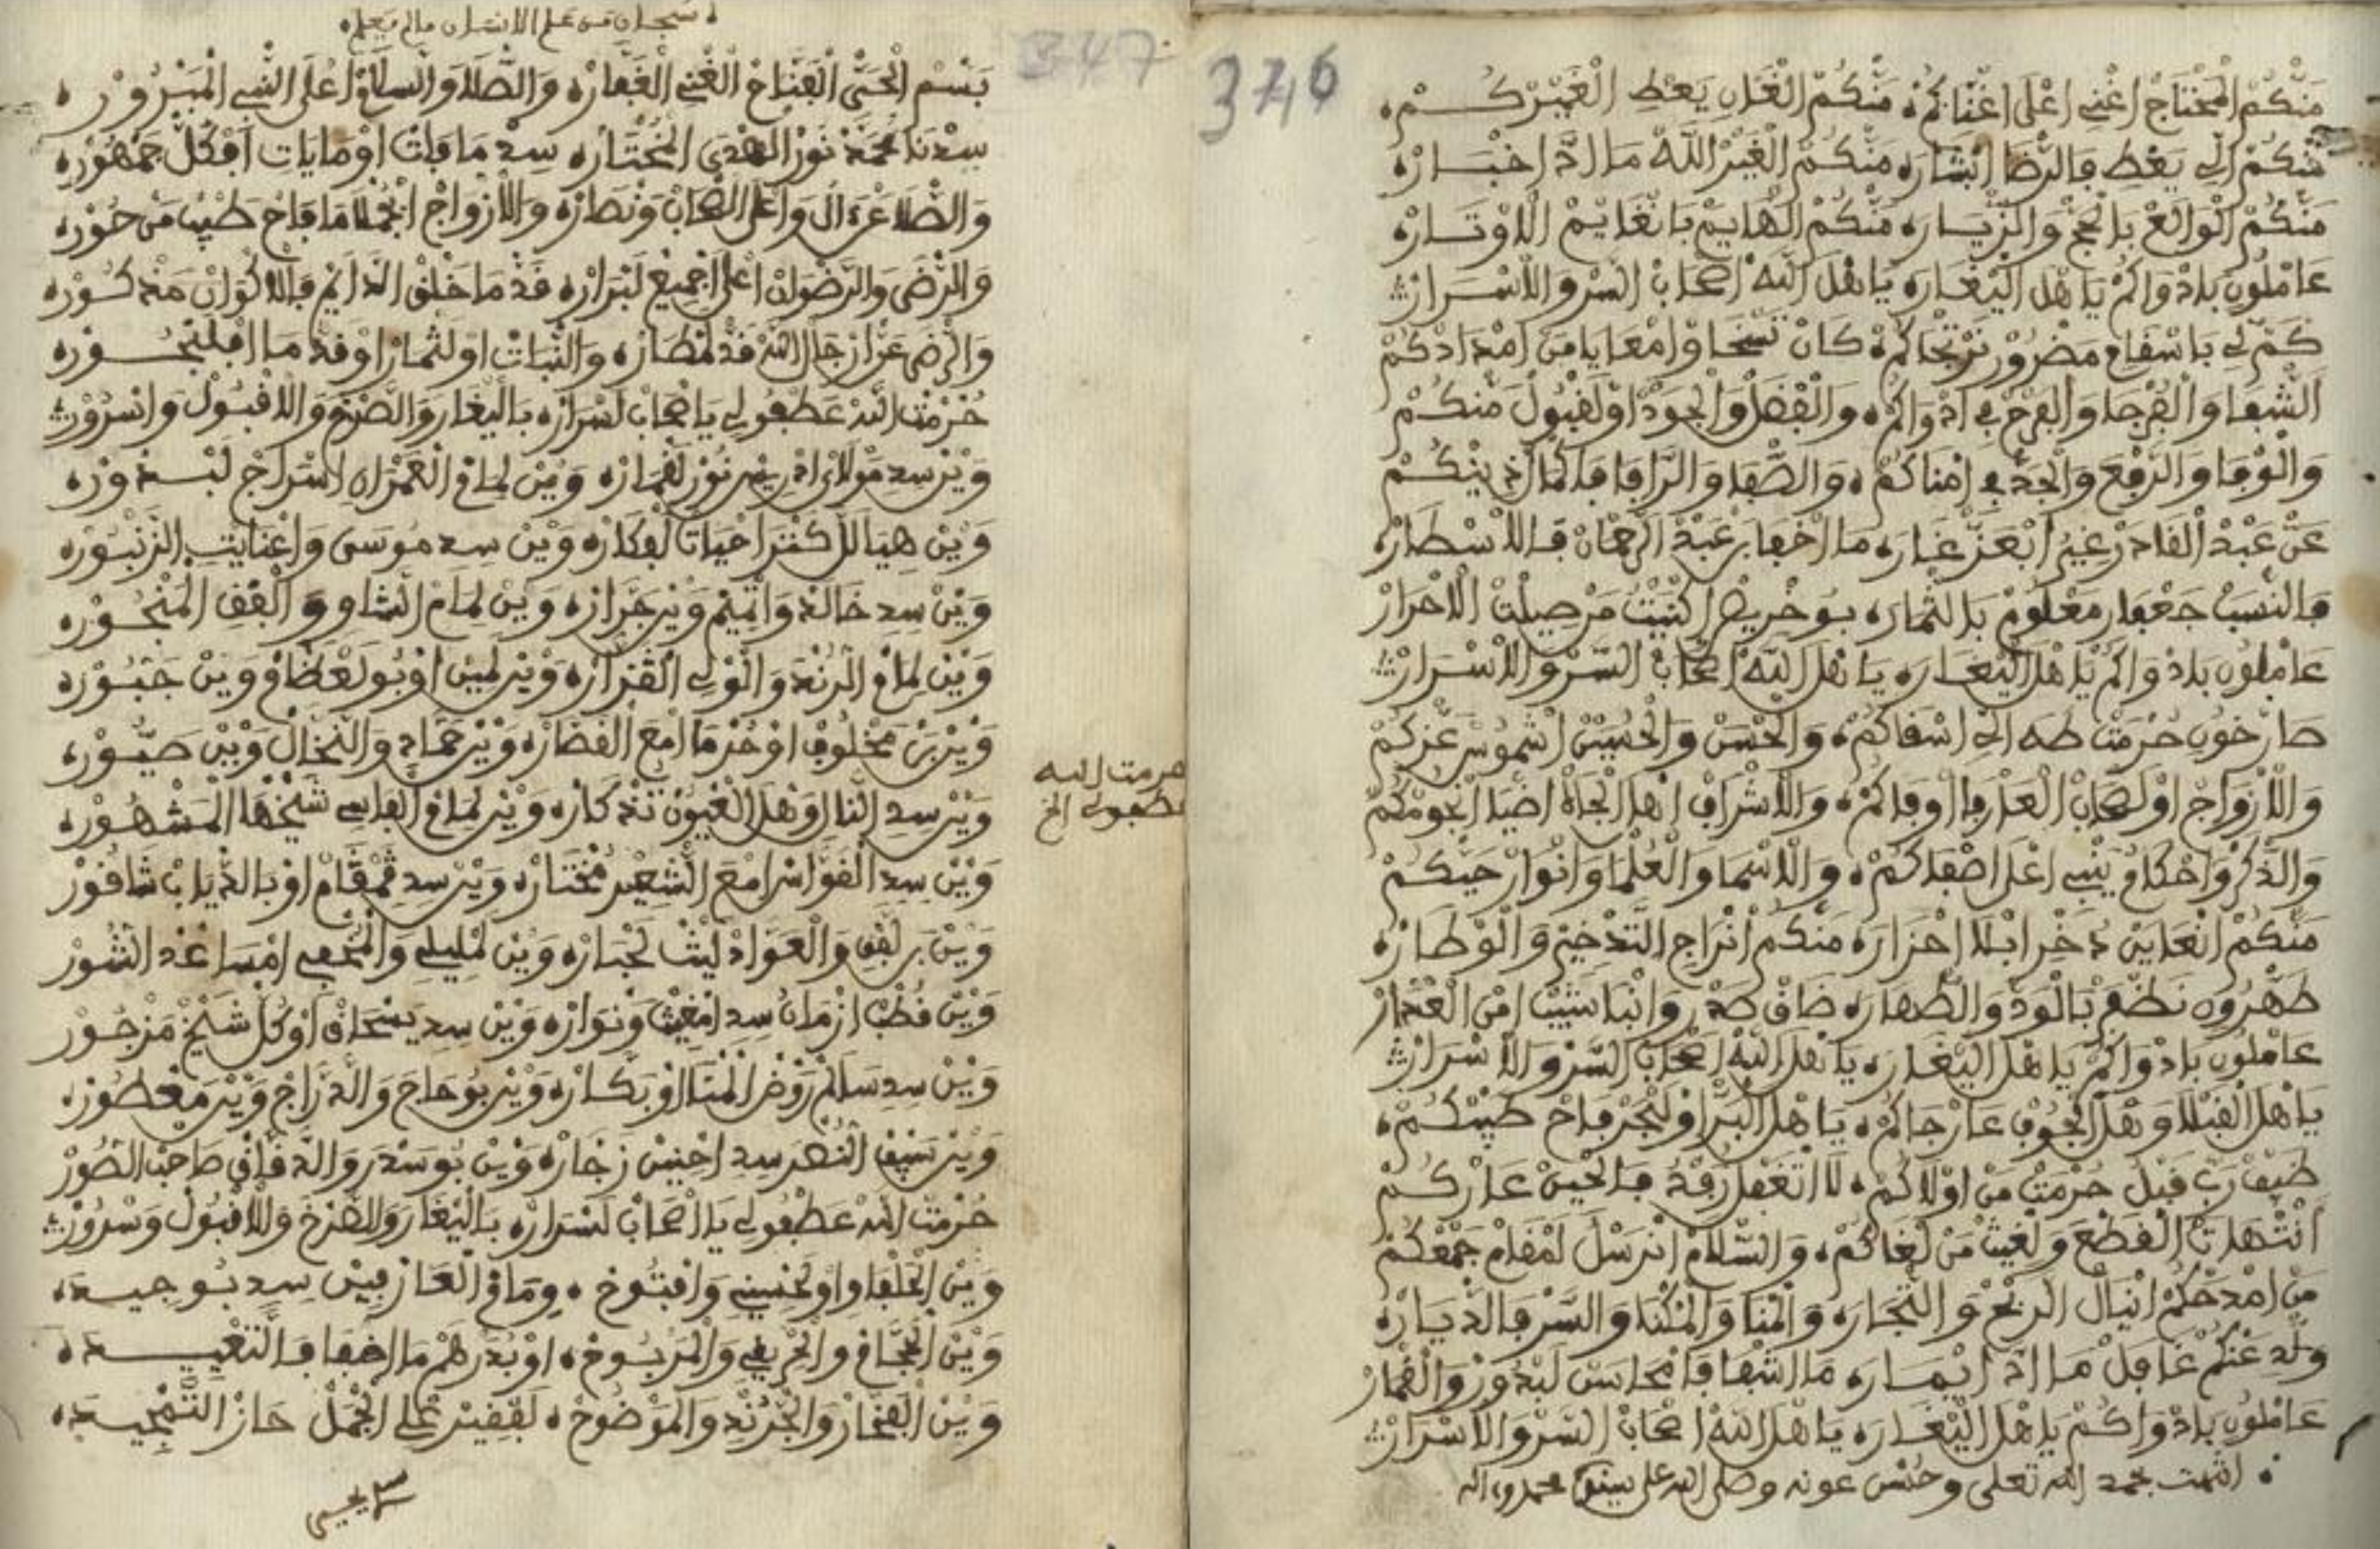 376
مَنْكُمْ الْمَحْتَاجْ اغْنِي اعْلَى اغْنَاكُمْ ه مَنْكُمْ الْغَانِ يَعْطِ الْغَيْرْكُمْ ه
مَنْكُمْ الِّي يَعْطِ فَالرّضَا ابْشَارَه مَنْكُمْ الْغَيْرْ اللَّهْ مَا ادَّا اخْبَارْ ه
مَنْكُمْ الْوَالَعْ بَالْحَجّْ وَالزّْيَارَه مَنْكُمْ الْهَايَمْ بَانْغَايَمْ الَاوْتَارْ ه
عَامْلُونِ بَادْوَاكُمْ يَا هْلَ الْيْغَارَه يَا هْلَ اللَّهْ اصْحَابْ السّرْ وَالَاسْرَارْ
كَمّْ لِي بَاسْقَامِ مَضْرُورْ نَرْتْجَاكُمْ ه كَانْ نَسْخَا وَامْعَايَا مَنْ امْدَادْكُمْ
الشّْفَا وَالْفُرْجَا وَالْفْرَحْ فِي ادْوَاكُمْ ه وَالْفْضَلْ وَالْجُودْ اوْلَقْبُولْ مَنْكُمْ
وَالْوْفَا وَالرَّفْعَ وَالْجَدّْ فِي امْنَاكُمْ ه وَالصّْفَا وَالرَّافَا فَاكْمَالْ دِينْكُمْ
عَنْ عَبْدْ الْقَادَرْ غِيرْ ابْعَزّْ غَارَه مَا اخْفَا بَنْ عَبْدْ الرَّحْمَانْ فَالَاسْطَارْ ه
فَالنّْسَبْ جَعْفَارِ مَعْلُومْ بَالثّْمَارَه بُوخْرِيصْ اكْنِيتُ مَنْ صِيلْتْ الَاحْرَارْ
عَامْلُونِ بَادْوَاكُمْ يَا هْلَ الْيْغَارَه يَا هْلَ اللَّهْ اصْحَابْ السّرْ وَالَاسْرَارْ
صَارْخُونِ حُرْمَتْ طَهَ الِّي اسْقَاكُمْ ه وَالْحْسَنْ وَالْحُسِينْ اشْمُوسْ عَزّكُمْ
وَالَازْوَاجْ اوْلَصْحَابْ الْعَزّْ فَا اوْفَاكُمْ ه وَالَاشْرَافْ اهْلَ الْجَاهْ اضْيَا انْجُومْكُمْ
وَالذّكْرْ وَاحْكَامْ يَنْبِي اعْلَ اصْفَاكُمْ ه وَالَاسْمَا وَالْعُلْمَا وَانْوَارْ حَيّكُمْ
مَنْكُمْ انْعَايَنْ دُخْرِ ابْلَا احْزَارَه مَنْكُمْ انْرَاجِ التَّدْخِيرْ وَالْوْطَارْ ه
طَهْرُونِ نَطْفَرْ بَالْوَدّْ وَالطّْهَارَه ضَاقْ صَدْرِ وَانْبَا سَيَّبْ امْنْ الْعْتَارْ
عَامْلُونِ بَادْوَاكُمْ يَا هْلَ الْيْغَارَه يَا هْلَ اللَّهْ اصْحَابْ السّرْ وَالَاسْرَارْ
يَا هْلَ الْقَبْلَا وَهْلَ الْجُوفْ عَارْجَاكُمْ ه يَا هْلَ الْبَرّْ اوْلَبْحَرْ فَاحْ طِيبْكُمْ ه
ضَيْفْ رَبِّ قَبْلْ حُرْمَتْ مَنْ اوْلَاكُمْ ه لَا اتْغَفْلُ رَفْدُ فَالْحِينْ عَارْكُمْ
انْتْهَاتْ الْقَطْعَ وَلْغِيثْ مَنْ لْغَاكُمْ ه وَالسّْلَامْ انْرَسْلُ لَمْقَامْ جَمْعْكُمْ
مَنْ امْدَحْكُمْ انْيَالْ الرّبْحْ وَالتّْجَارَه وَالْمْنَا وَالْمُكْنَا وَالسّرْ فَالدّْيَارْ ه
وَلّدِ عَنْكُمْ غَافَلْ مَا ادَّا ايْمَارَه مَا اشْفَا فَا مْحَاسَنْ لَبْدُورْ وَالْقْمَارْ
عَامْلُونِ بَادْوَاكُمْ يَا هْلَ الْيْغَارَه يَا هْلَ اللَّهْ اصْحَابْ السّرْ وَالَاسْرَارْ
انتهت بحمد الله تعلى وحسن عونه وصلى الله على سيدنا محمد وءاله
347
سبحان من علم الانسان مالم يعلم ه
بَسْمْ الْحَيّْ الْفَتَّاحْ الْغْنِي الْغَفَّارْ ه وَالصّْلَا وَالسلَامْ اعْلَى النّْبِي الْمَبْرُورْ ه
سِدْنَا مُحَمَّدْ نُورْ الْهْدَى الْمُخْتَارْ ه سِدْ مَا فَاتْ اوْ مَا يَاتِ افْكُلّْ جَمْهُورْ ه
وَالصّْلَا عَنْ الُ وَاعْلَ الصْحَابْ وَنْصَارْ ه وَالَازْوَاجْ ابْجُمْلَا مَا فَاحْ طَيْبْ مَنْ حُورْ ه
وَالرّْضَى وَالرَّضْوَانْ اعْلَى اجْمِيعْ لَبْرَارْ ه قَدّْ مَا خَلْقْ الدَّايَمْ فَالَاكْوَانْ مَدْكُورْ ه
وَالرّضَى عَنْ ارْجَالْ اللَّهْ قَدّْ لَمْطَارْ ه وَالنّْبَاتْ اوْلَثْمَارْ اوْقَدّْ مَا افْلَبْحُورْ ه
حُرْمْتْ اللَّهْ عَطْفُو لِي يَا صْحَابْ لَسْرَارْ ه بَالْيْغَارَ وَالصَّرْخَ وَالَاقْبُولْ وَاسْرُورْ
وَيْنْ سِدِ مُولَايْ ادْرِيسْ نُورْ لَقْمَارْ ه وَيْنْ لِمَامْ الْعَمْرَانِ اسْرَاجْ لَبْدُورْ ه
وَيْنْ هِيَا لَلَّ كَنْزَ احْيَاتْ لَفْكَارْ ه وَيْنْ سِدِ مُوسَى وَاعْنَايْتِ الزَّنْبُورْ ه
وَيْنْ سِدِ خَالَدْ وَاتْمِيمْ وَيْنْ خَرَّازْ ه وَيْنْ لِمَامْ الشَّاوِ وَالْقْفِ الْمَنْجُورْ ه
وَيْنْ لِمَامْ الرُّنْدَ وَالْوْلِي الْقَزَّارْ ه وَيْنْ لَمِينْ اوْبُولَعْظَامْ وَيْنْ جَبُّورْ ه
وَيْنْ بَنْ مَخْلُوفْ اوْحَرْمَا امْعَ الْقَصَّارْ ه وَيْنْ حَمَّادِ وَالنَّخَّالْ وَيْنْ صَبُّورْ ه
وَيْنْ سِدِ النَّالِ وَهْلَ الْعْيُونْ تَدْكَارْ ه وَيْنْ لِمَامْ الْفَاسِي شَيْخْهَا الْمَشْهُورْ ه
وَيْنْ سِدِ الْغَوَّاسْ امْعَ الشّْعِيرْ مُخْتَارْ ه وَيْنْ سِدِ قَمْقَامْ اوْبَالدّْيَابْ شَاقُورْ
وَيْنْ بَلَّفْقِ وَالْعَوَّادْ لَيْثْ لَخْبَارْ ه وَيْنْ لَمْلِيلِي وَالْمُخْفِي امْسَاعْدْ الشُّورْ
وَيْنْ قُطْبْ ازْمَانُ سِدِ امْغِيثْ وَنْوَارْ ه وَيْنْ سِدِ يَسْحَاقْ اوْكُلّْ شَيْخْ مَزْجُورْ
وَيْنْ سِدِ سَالَمْ رَوْضْ الْمْنَا اوْبَكَّارْ ه وَيْنْ بُوحَاجَ وَالدَّرَّاجْ وَيْنْ مَغْطُورْ ه
وَيْنْ سَيْفْ النَّصْرْ سِدِ احْنِينْ زَخَّارْ ه وَيْنْ بُوسَدْرَ وَالدَّقَّاقْ صَاحَبْ الصُّورْ
حُرْمْتْ اللَّهْ عَطْفُو لِي يَا صْحَابْ لَسْرَارْ ه بَالْيْغَارَ وَالصَّرْخَ وَالَاقْبُولْ وَسْرُورْ
وَيْنْ الْحَلْفَاوِ اوْلَحْسِينِي وَافْتُوحْ ه وِمَامْ الْعَازْفِينْ سِدِ بُوجِيدَ ه
وَيْنْ الْحَجَّامْ وَالْحْرِيفِي وَالْمَرْبُوحْ ه اوْبَدْرْهُمْ مَا اخْفَا فَالتَّغْيِيدَ ه
وَيْنْ الْفَخَّارْ وَالْجَرُنْدِ وَالْمَوْضُوحْ ه لَفْقِيرْ عْلِي الْجْمَلْ حَازْ التَّمْجِيدَ ه
حرمت الله
عطفولى الخ
يحيى